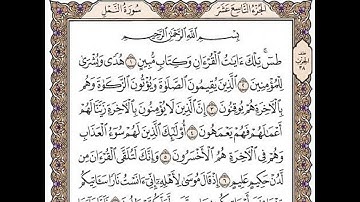 الجزء التاسع عشر
سورة النمل
بِسْمِ اللَّهِ الرَّحْمَٰنِ الرَّحِيمِ
طسٓ تِلْكَ ءَايَٰتُ ٱلْقُرْءَانِ وَكِتَابٍ مُّبِينٍ ١ هُدًى وَبُشْرَىٰ
لِلْمُؤْمِنِينَ ٢ ٱلَّذِينَ يُقِيمُونَ ٱلصَّلَوٰةَ وَيُؤْتُونَ ٱلزَّكَوٰةَ وَهُم
بِٱلْءَاخِرَةِ هُمْ يُوقِنُونَ ٣ إِنَّ ٱلَّذِينَ لَا يُؤْمِنُونَ بِٱلْءَاخِرَةِ زَيَّنَّا لَهُمْ
أَعْمَٰلَهُمْ فَهُمْ يَعْمَهُونَ ٤ أُو۟لَٰٓئِكَ ٱلَّذِينَ لَهُمْ سُوٓءُ ٱلْعَذَابِ
وَهُمْ فِى ٱلْءَاخِرَةِ هُمُ ٱلْأَخْسَرُونَ ٥ وَإِنَّكَ لَتُلَقَّى ٱلْقُرْءَانَ مِن
لَّدُنْ حَكِيمٍ عَلِيمٍ ٦ إِذْ قَالَ مُوسَىٰ لِأَهْلِهِۦٓ إِنِّىٓ ءَانَسْتُ نَارًا سَـَٔاتِيكُم